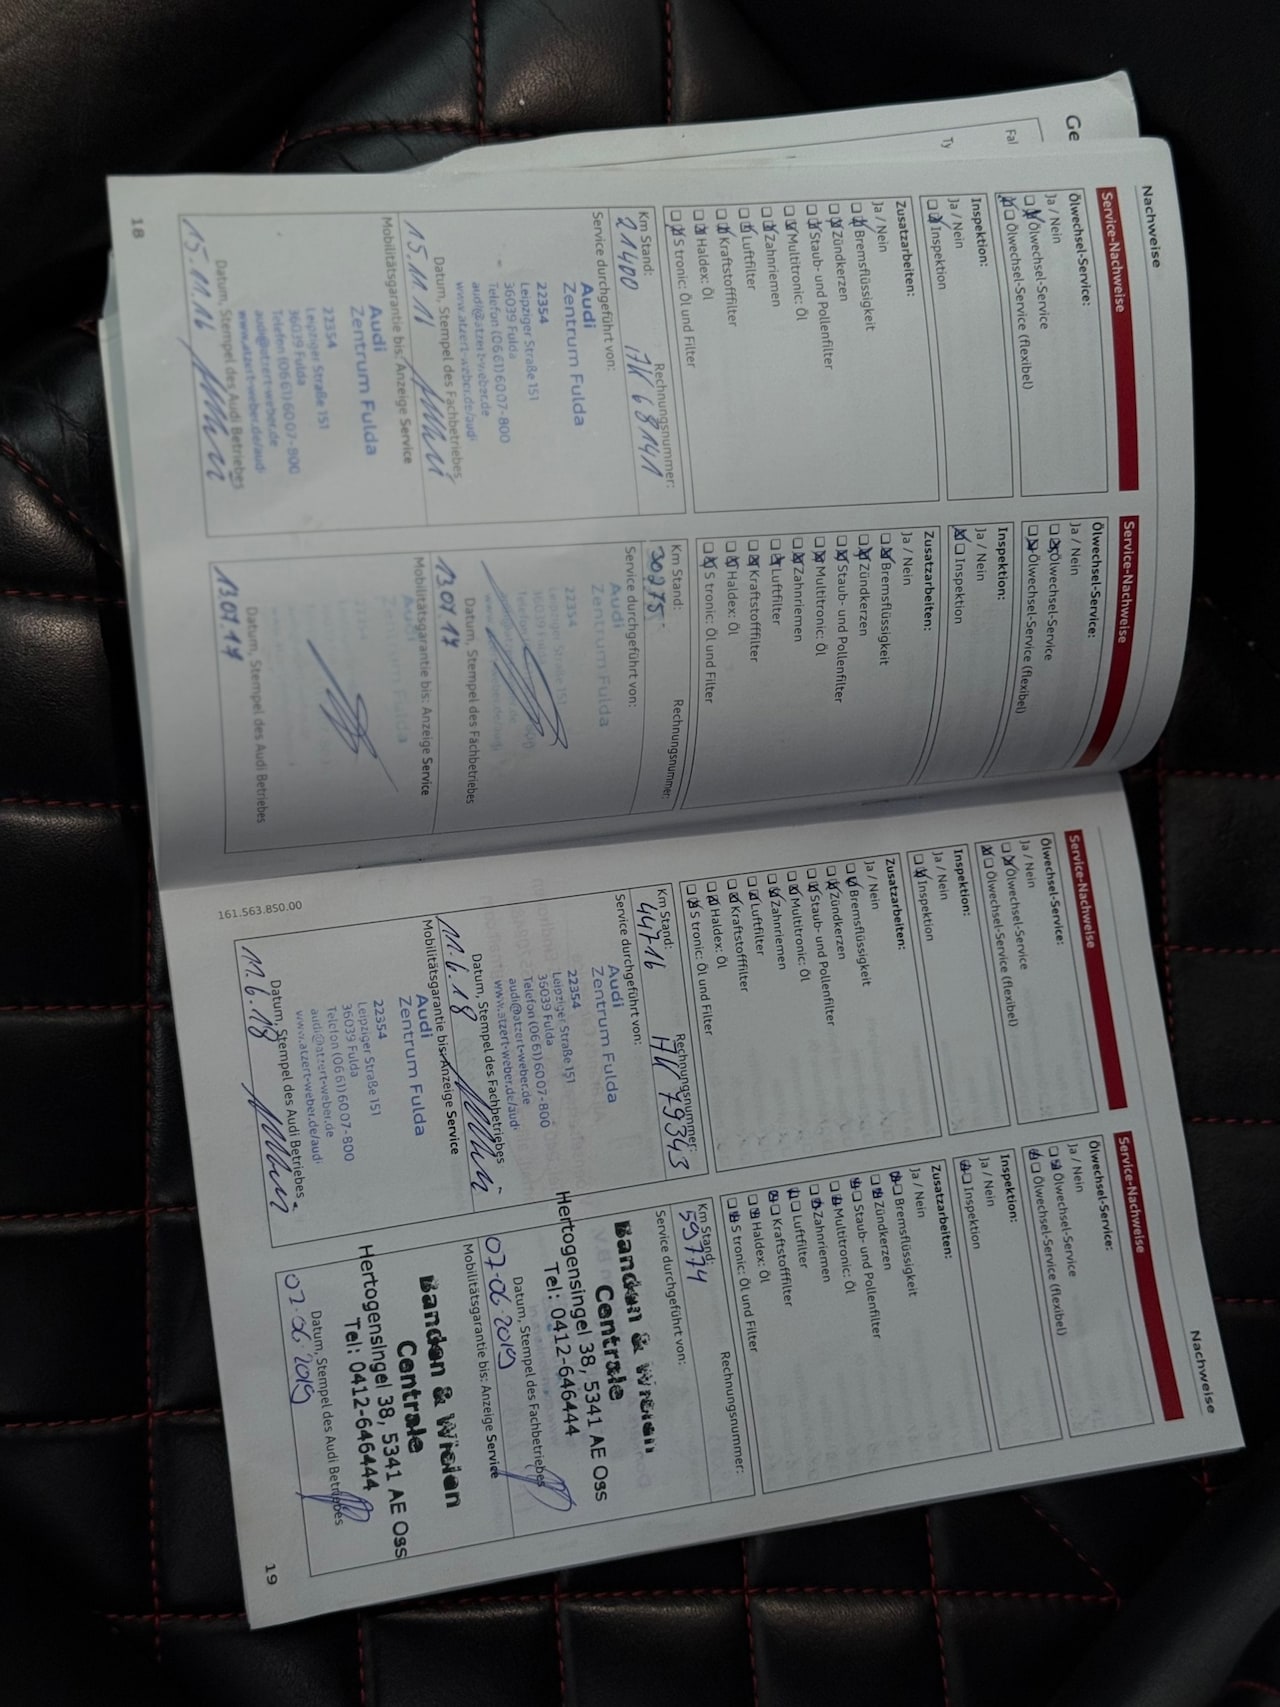 Ge
Fal
Ty
Nachweise
Service-Nachweise
Ölwechsel-Service:
Ja / Nein
Ölwechsel-Service
Ölwechsel-Service (flexibel)
Inspektion:
Ja / Nein
Inspektion
Zusatzarbeiten:
Ja / Nein
Bremsflüssigkeit
Zündkerzen
Staub- und Pollenfilter
Multitronic: Öl
Zahnriemen
Luftfilter
Kraftstofffilter
Haldex: Öl
S tronic: Öl und Filter
Km Stand: Rechnungsnummer:
21400
Service durchgeführt von:
Audi
Zentrum Fulda
22354
Leipziger Straße 151
36039 Fulda
Telefon (06 61) 60 07-800
audi@atzert-weber.de
www.atzert-weber.de/audi
15.11.16
Datum, Stempel des Fachbetriebes
Mobilitätsgarantie bis: Anzeige Service
Audi
Zentrum Fulda
22354
Leipziger Straße 151
36039 Fulda
Telefon (06 61) 60 07-800
audi@atzert-weber.de
www.atzert-weber.de/audi
15.11.16
Datum, Stempel des Audi Betriebes
18
Service-Nachweise
Ölwechsel-Service:
Ja / Nein
Ölwechsel-Service
Ölwechsel-Service (flexibel)
Inspektion:
Ja / Nein
Inspektion
Zusatzarbeiten:
Ja / Nein
Bremsflüssigkeit
Zündkerzen
Staub- und Pollenfilter
Multitronic: Öl
Zahnriemen
Luftfilter
Kraftstofffilter
Haldex: Öl
S tronic: Öl und Filter
Km Stand: Rechnungsnummer:
30275
Service durchgeführt von:
Audi
Zentrum Fulda
22354
Leipziger Straße 151
13.07.17
Datum, Stempel des Fachbetriebes
Mobilitätsgarantie bis: Anzeige Service
13.07.17
Datum, Stempel des Audi Betriebes
Service-Nachweise
Ölwechsel-Service:
Ja / Nein
Ölwechsel-Service
Ölwechsel-Service (flexibel)
Inspektion:
Ja / Nein
Inspektion
Zusatzarbeiten:
Ja / Nein
Bremsflüssigkeit
Zündkerzen
Staub- und Pollenfilter
Multitronic: Öl
Zahnriemen
Luftfilter
Kraftstofffilter
Haldex: Öl
S tronic: Öl und Filter
Km Stand: Rechnungsnummer:
44716 79343
Service durchgeführt von:
Audi
Zentrum Fulda
22354
Leipziger Straße 151
36039 Fulda
Telefon (06 61) 60 07-800
audi@atzert-weber.de
www.atzert-weber.de/audi
11.6.18
Datum, Stempel des Fachbetriebes
Mobilitätsgarantie bis: Anzeige Service
Audi
Zentrum Fulda
22354
Leipziger Straße 151
36039 Fulda
Telefon (06 61) 60 07-800
audi@atzert-weber.de
www.atzert-weber.de/audi
11.6.18
Datum, Stempel des Audi Betriebes
161.563.850.00
Nachweise
Service-Nachweise
Ölwechsel-Service:
Ja / Nein
Ölwechsel-Service
Ölwechsel-Service (flexibel)
Inspektion:
Ja / Nein
Inspektion
Zusatzarbeiten:
Ja / Nein
Bremsflüssigkeit
Zündkerzen
Staub- und Pollenfilter
Multitronic: Öl
Zahnriemen
Luftfilter
Kraftstofffilter
Haldex: Öl
S tronic: Öl und Filter
Km Stand: Rechnungsnummer:
59774
Service durchgeführt von:
Banden & Wielen
Centrale
Hertogensingel 38, 5341 AE Oss
Tel: 0412-646444
07-06-2019
Datum, Stempel des Fachbetriebes
Mobilitätsgarantie bis: Anzeige Service
Banden & Wielen
Centrale
Hertogensingel 38, 5341 AE Oss
Tel: 0412-646444
07.06.2019
Datum, Stempel des Audi Betriebes
19